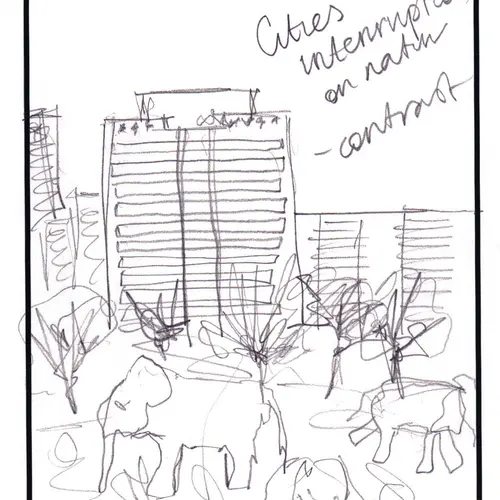 Cities
interrupted
on nature
- contrast